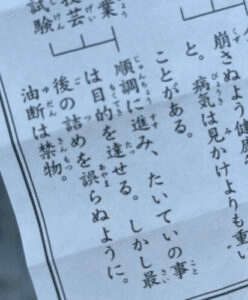 崩さぬよう健康
と。病気は見かけよりも重い
ことがある。
順調に進み、たいていの事
は目的を達せる。しかし最
後の詰めを誤らぬように。
油断は禁物。
業
技芸
試験